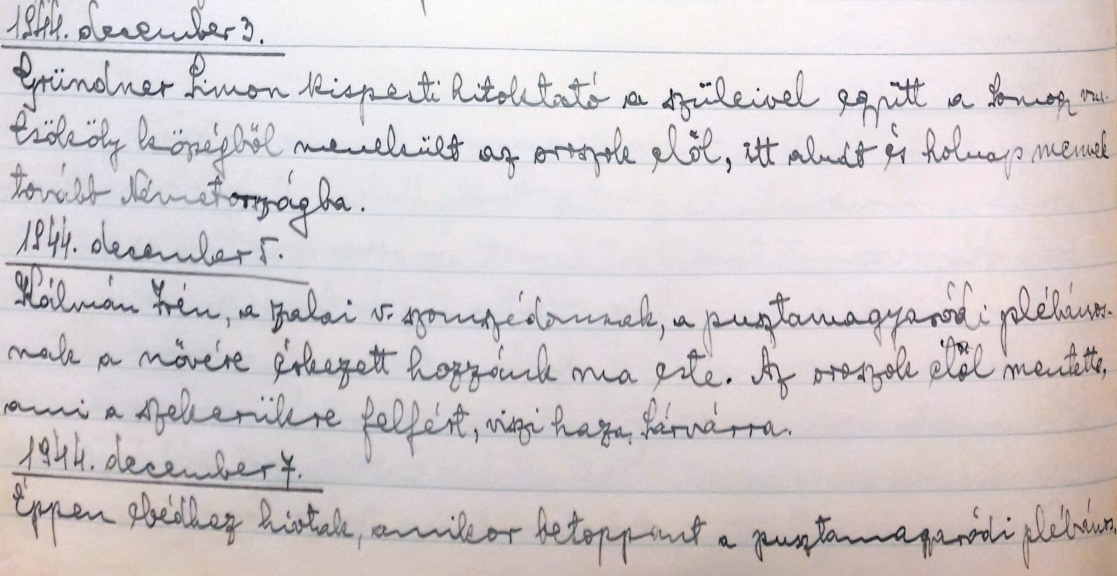 1944. december 3.
Gründner Simon kispesti hitoktató a szüleivel együtt a Somogy vm.
Csököly községből menekült az oroszok elől, itt aludt és holnap mennek
tovább Németországba.
1944. december 5.
Kálmán Irén, a zalai v. szomszédomnak, a pusztamagyaródi plébános-
nak a nővére érkezett hozzánk ma este. Az oroszok elől mentette,
ami a szekerükre felfért, viszi haza, Sárvárra.
1944. december 7.
Éppen ebédhez hívtak, amikor betoppant a pusztamagaródi plébános